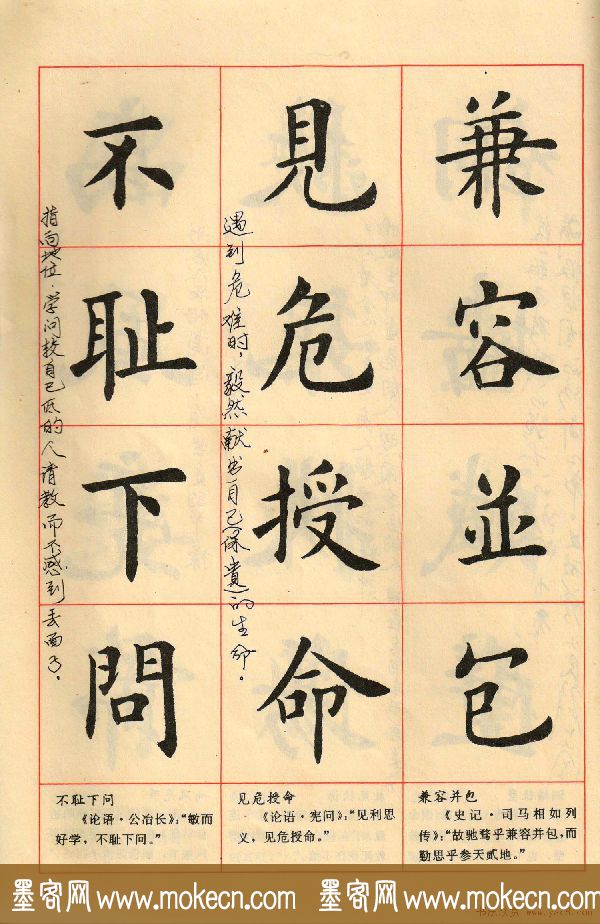 兼容並包
見危授命
遇到危难时，毅然献出自己的生命。
不耻下問
指向地位·学问较自己低的人请教而不感到丢面了。
兼容并包
《史记·司马相如列
传》：“故驰骛乎兼容并包，而
勤思乎参天贰地。”
见危授命
《论语·宪问》：“见利思
义，见危授命。”
不耻下问
《论语·公冶长》：“敏而
好学，不耻下问。”
墨客网 www.mokecn.com 墨客网 www.mokecn.com